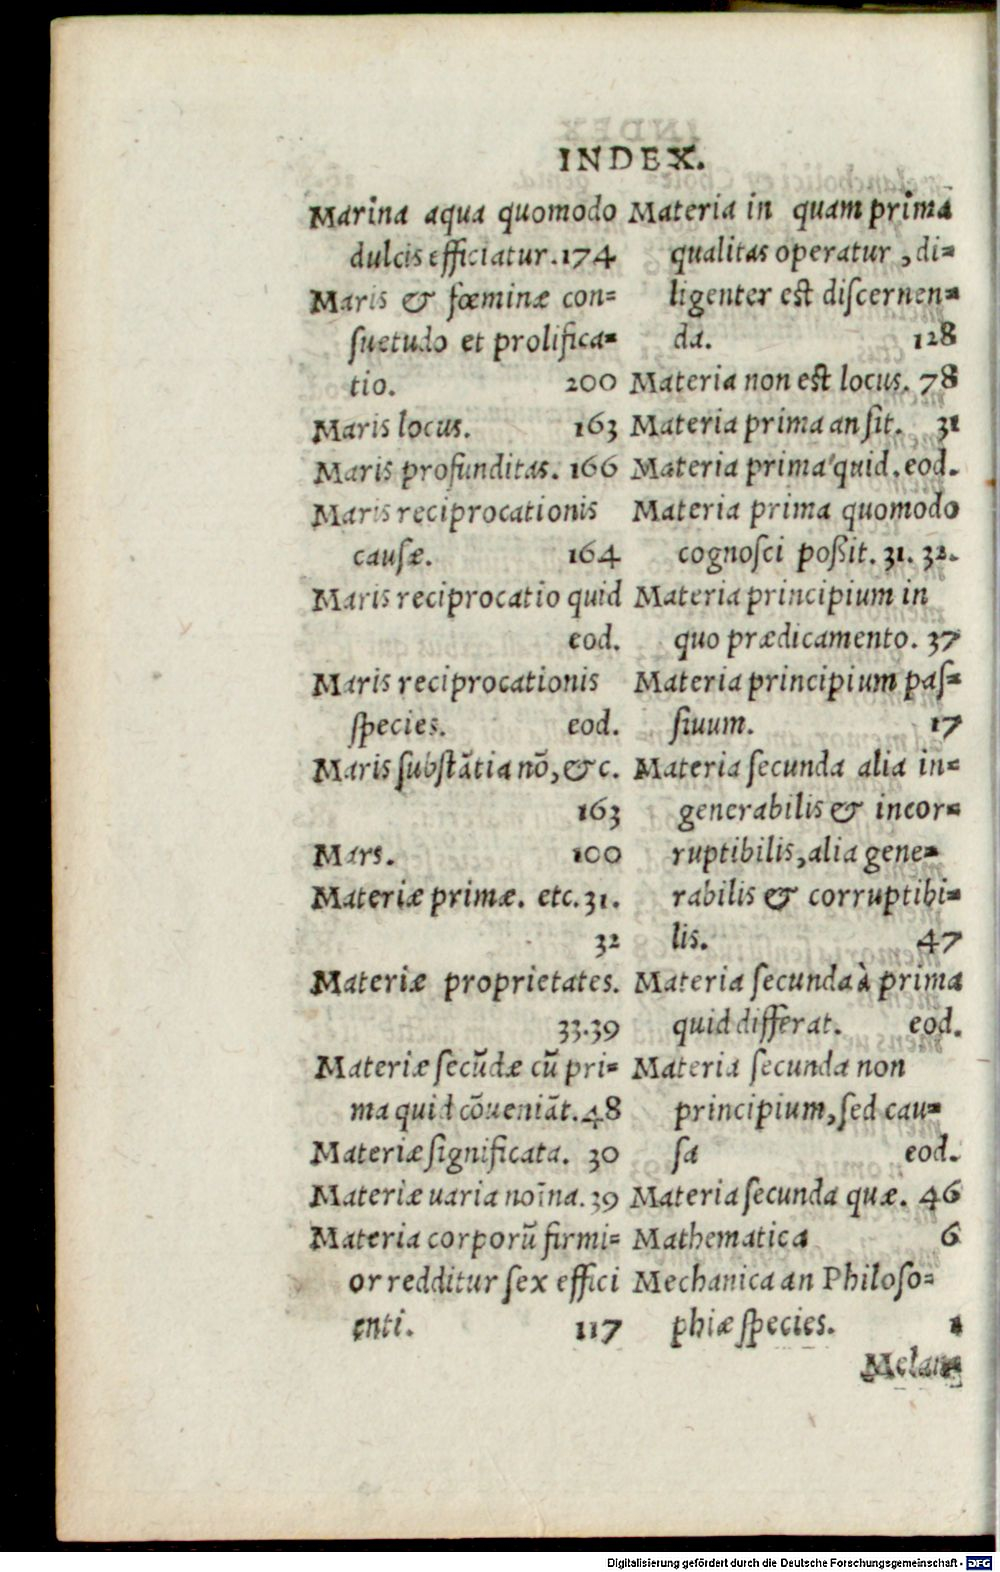 INDEX.
Marina aqua quomodo
dulcis efficiatur. 174
Maris & fœminæ con=
ſuetudo et prolifica=
tio. 200
Maris locus. 163
Maris profunditas. 166
Maris reciprocationis
cauſæ. 164
Maris reciprocatio quid
eod.
Maris reciprocationis
ſpecies. eod.
Maris ſubſtãtia nõ, &c.
163
Mars. 100
Materiæ primæ. etc. 31.
32
Materiæ proprietates.
33.39
Materiæ ſecũdæ cũ pri=
ma quid cõueniãt. 48
Materiæ ſignificata. 30
Materiæ uaria noīna. 39
Materia corporũ firmi=
or redditur ſex effici
enti. 117
Materia in quam prima
qualitas operatur, di=
ligenter eſt diſcernen=
da. 128
Materia non eſt locus. 78
Materia prima an ſit. 31
Materia prima quid. eod.
Materia prima quomodo
cognoſci poßit. 31. 32.
Materia principium in
quo prædicamento. 37
Materia principium paſ=
ſiuum. 17
Materia ſecunda alia in=
generabilis & incor=
ruptibilis, alia gene=
rabilis & corruptibi=
lis. 47
Materia ſecunda à prima
quid differat. eod.
Materia ſecunda non
principium, ſed cau=
ſa eod.
Materia ſecunda quæ. 46
Mathematica 6
Mechanica an Philoſo=
phiæ ſpecies. 1
Melan=
Digitalisierung gefördert durch die Deutsche Forschungsgemeinschaft - DFG